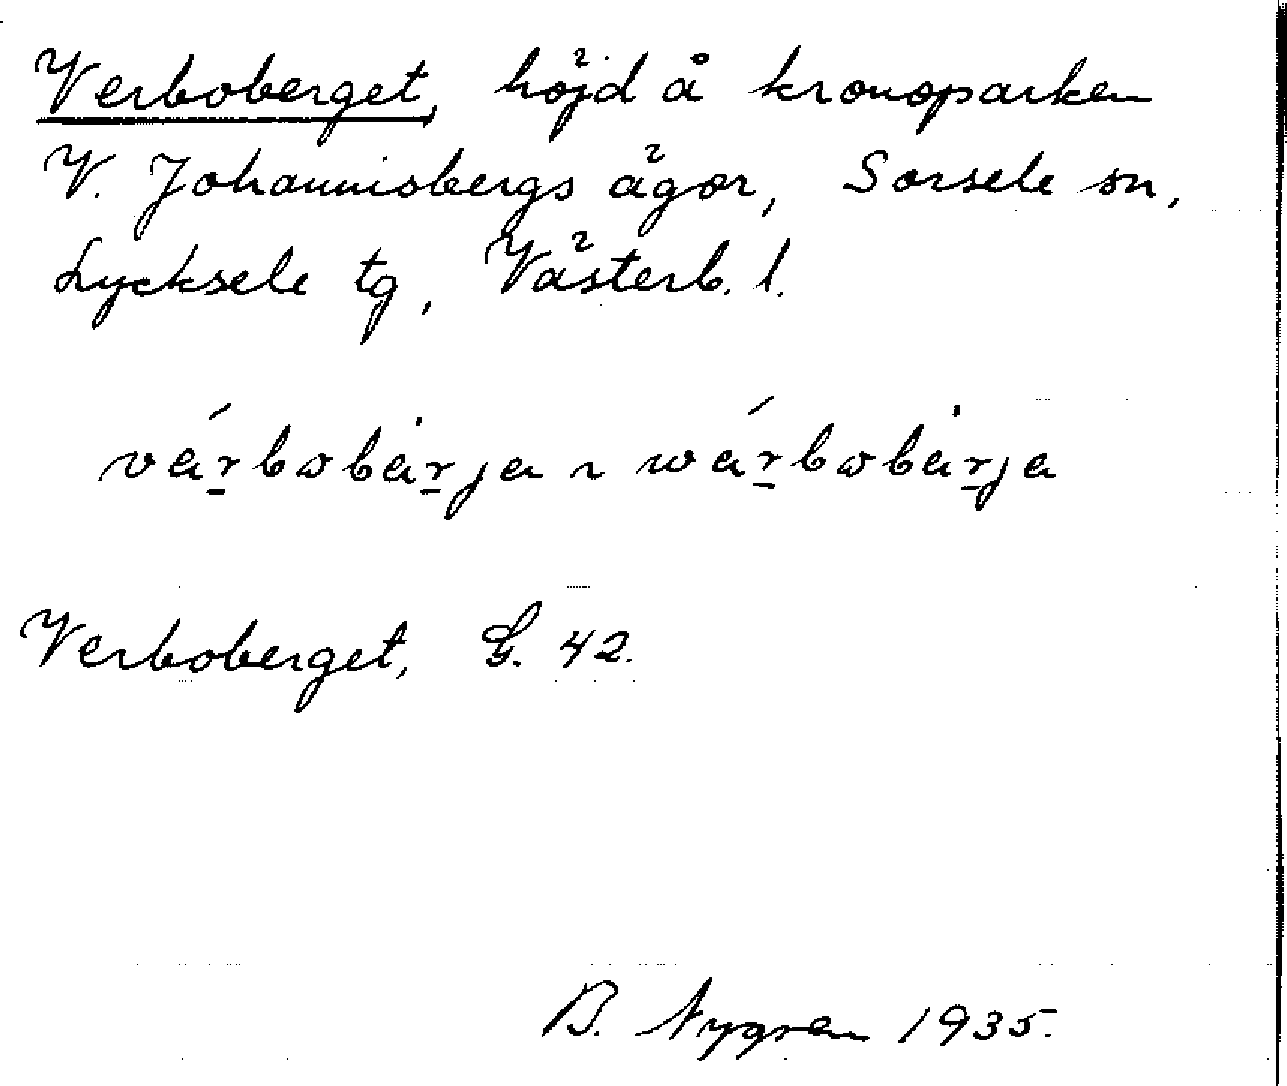 Verboberget, höjd å kronoparken
V. Johannisbergs ägor, Sorsele sn,
Lycksele tg, Västerb. l.
várbobȧrja ~ wárbobȧrja
Verboberget, G. 42.
B. Nygren 1935.